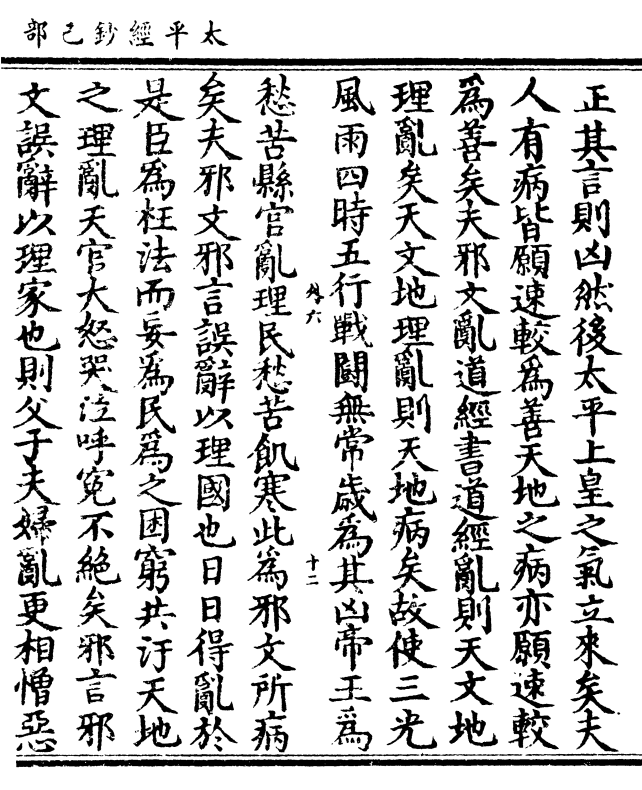 太平經鈔己部
正其言則凶然後太平上皇之氣立來矣夫
人有病皆願速較為善天地之病亦願速較
為善矣夫邪文亂道經書道經亂則天文地
理亂矣天文地理亂則天地病矣故使三光
風雨四時五行戰鬪無常歲為其凶帝王為
外六
十二
愁苦縣官亂理民愁苦飢寒此為邪文所病
矣夫邪文邪言誤辭以理國也日日得亂於
是臣為枉法而妄為民為之困窮共汙天地
之理亂天官大怒哭泣呼寃不絕矣邪言邪
文誤辭以理家也則父子夫婦亂更相憎惡